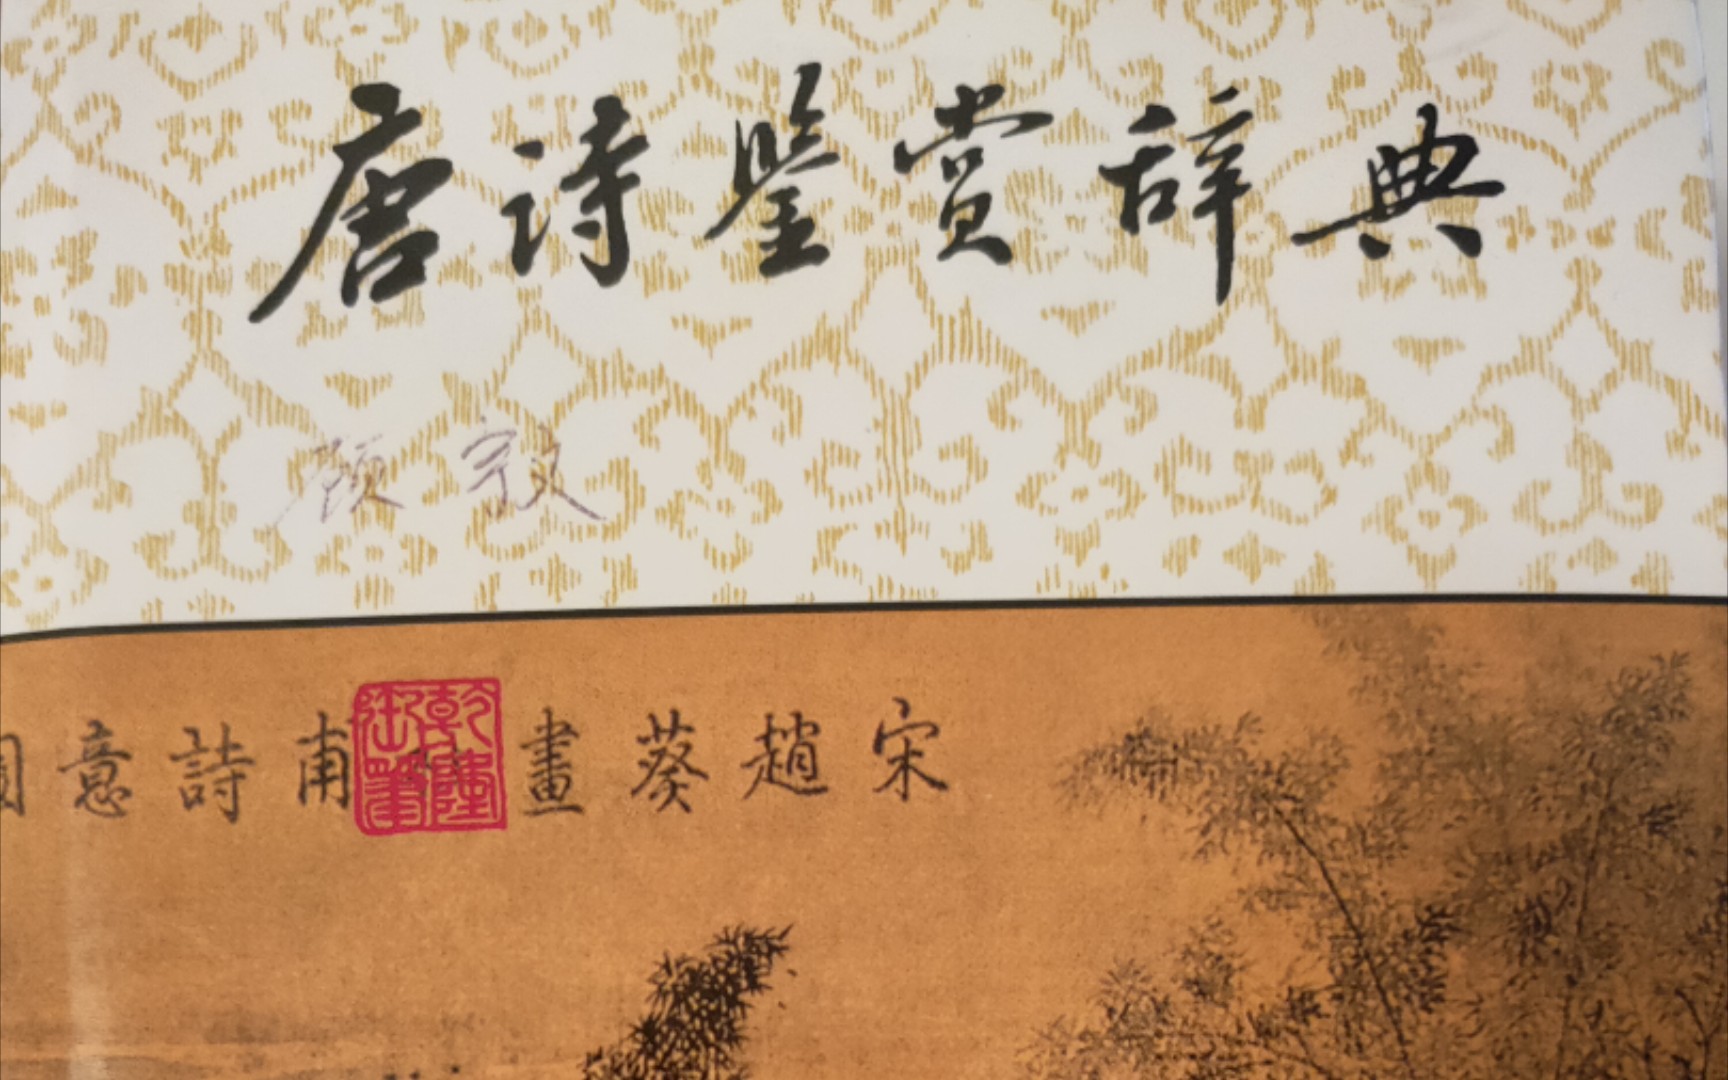 唐诗鉴赏辞典
宋趙葵畫甫詩意圖
乾隆御筆